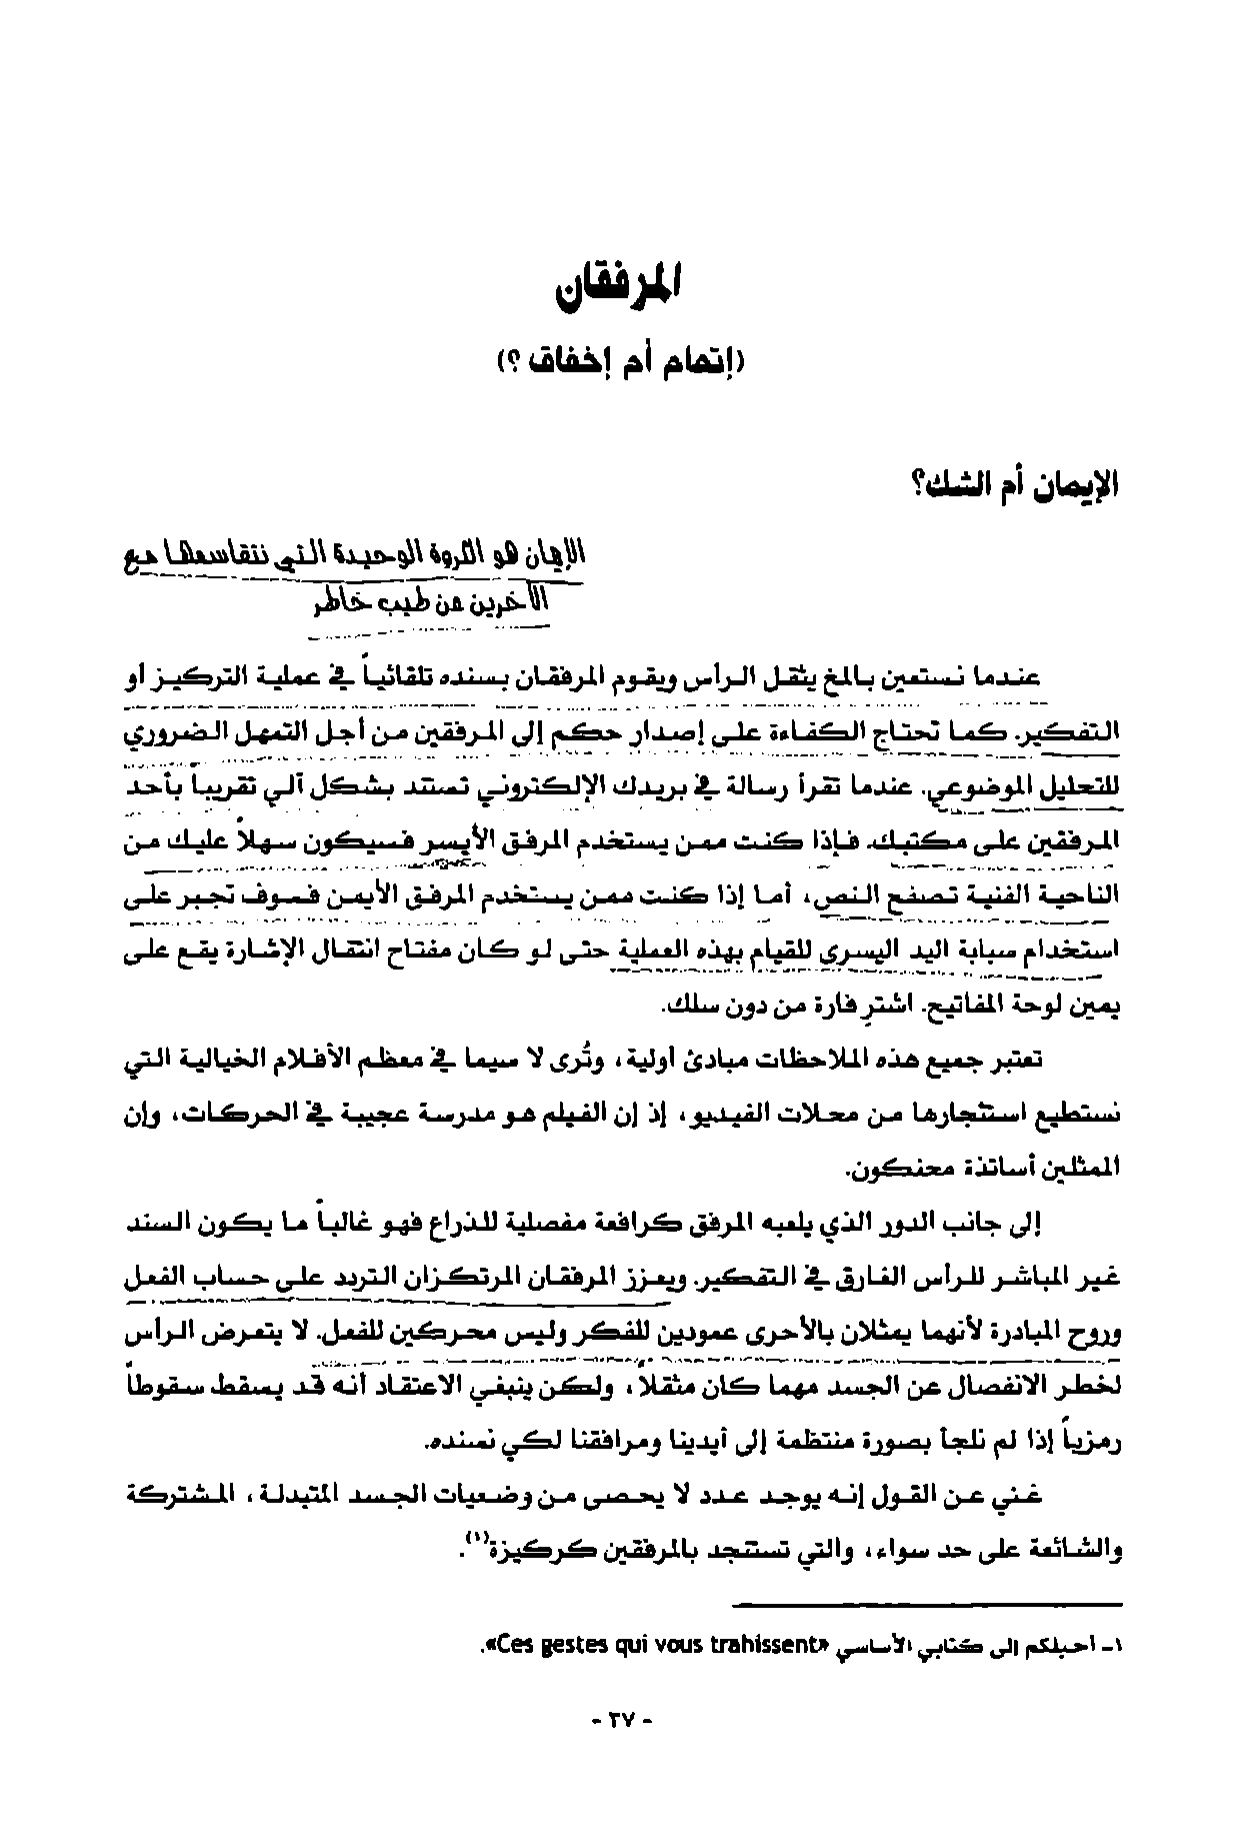 المرفقان
(إتمام أم إخفاق ؟)
الإيمان أم الشك؟
الإيمان هو الثروة الوحيدة التي نتقاسمها مع
الآخرين عن طيب خاطر
عندما نستعين بالمخ يثقل الرأس ويقوم المرفقان بسنده تلقائياً في عملية التركيز أو
التفكير. كما تحتاج الكفاءة على إصدار حكم إلى المرفقين من أجل التمهل الضروري
للتحليل الموضوعي. عندما تقرأ رسالة في بريدك الإلكتروني تستند بشكل آلي تقريباً بأحد
المرفقين على مكتبك. فإذا كنت ممن يستخدم المرفق الأيسر فسيكون سهلاً عليك من
الناحية الفنية تصفح النص، أما إذا كنت ممن يستخدم المرفق الأيمن فسوف تجبر على
استخدام سبابة اليد اليسرى للقيام بهذه العملية حتى لو كان مفتاح انتقال الإشارة يقع على
يمين لوحة المفاتيح. اشترِ فارة من دون سلك.
تعتبر جميع هذه الملاحظات مبادئ أولية، وتُرى لا سيما في معظم الأفلام الخيالية التي
نستطيع استئجارها من محلات الفيديو، إذ إن الفيلم هو مدرسة عجيبة في الحركات، وإن
الممثلين أساتذة محنكون.
إلى جانب الدور الذي يلعبه المرفق كرافعة مفصلية للذراع فهو غالباً ما يكون السند
غير المباشر للرأس الفارق في التفكير. ويعزز المرفقان المرتكزان التردد على حساب الفعل
وروح المبادرة لأنهما يمثلان بالأحرى عمودين للفكر وليس محركين للفعل. لا يتعرض الرأس
لخطر الانفصال عن الجسد مهما كان مثقلاً، ولكن ينبغي الاعتقاد أنه قد يسقط سقوطاً
رمزياً إذا لم نلجأ بصورة منتظمة إلى أيدينا ومرافقنا لكي نسنده.
غني عن القول إنه يوجد عدد لا يحصى من وضعيات الجسد المتبدلة، المشتركة
والشائعة على حد سواء، والتي تستنجد بالمرفقين كركيزة(١).
١- أحيلكم إلى كتابي الأساسي «Ces gestes qui vous trahissent».
- ٢٧ -